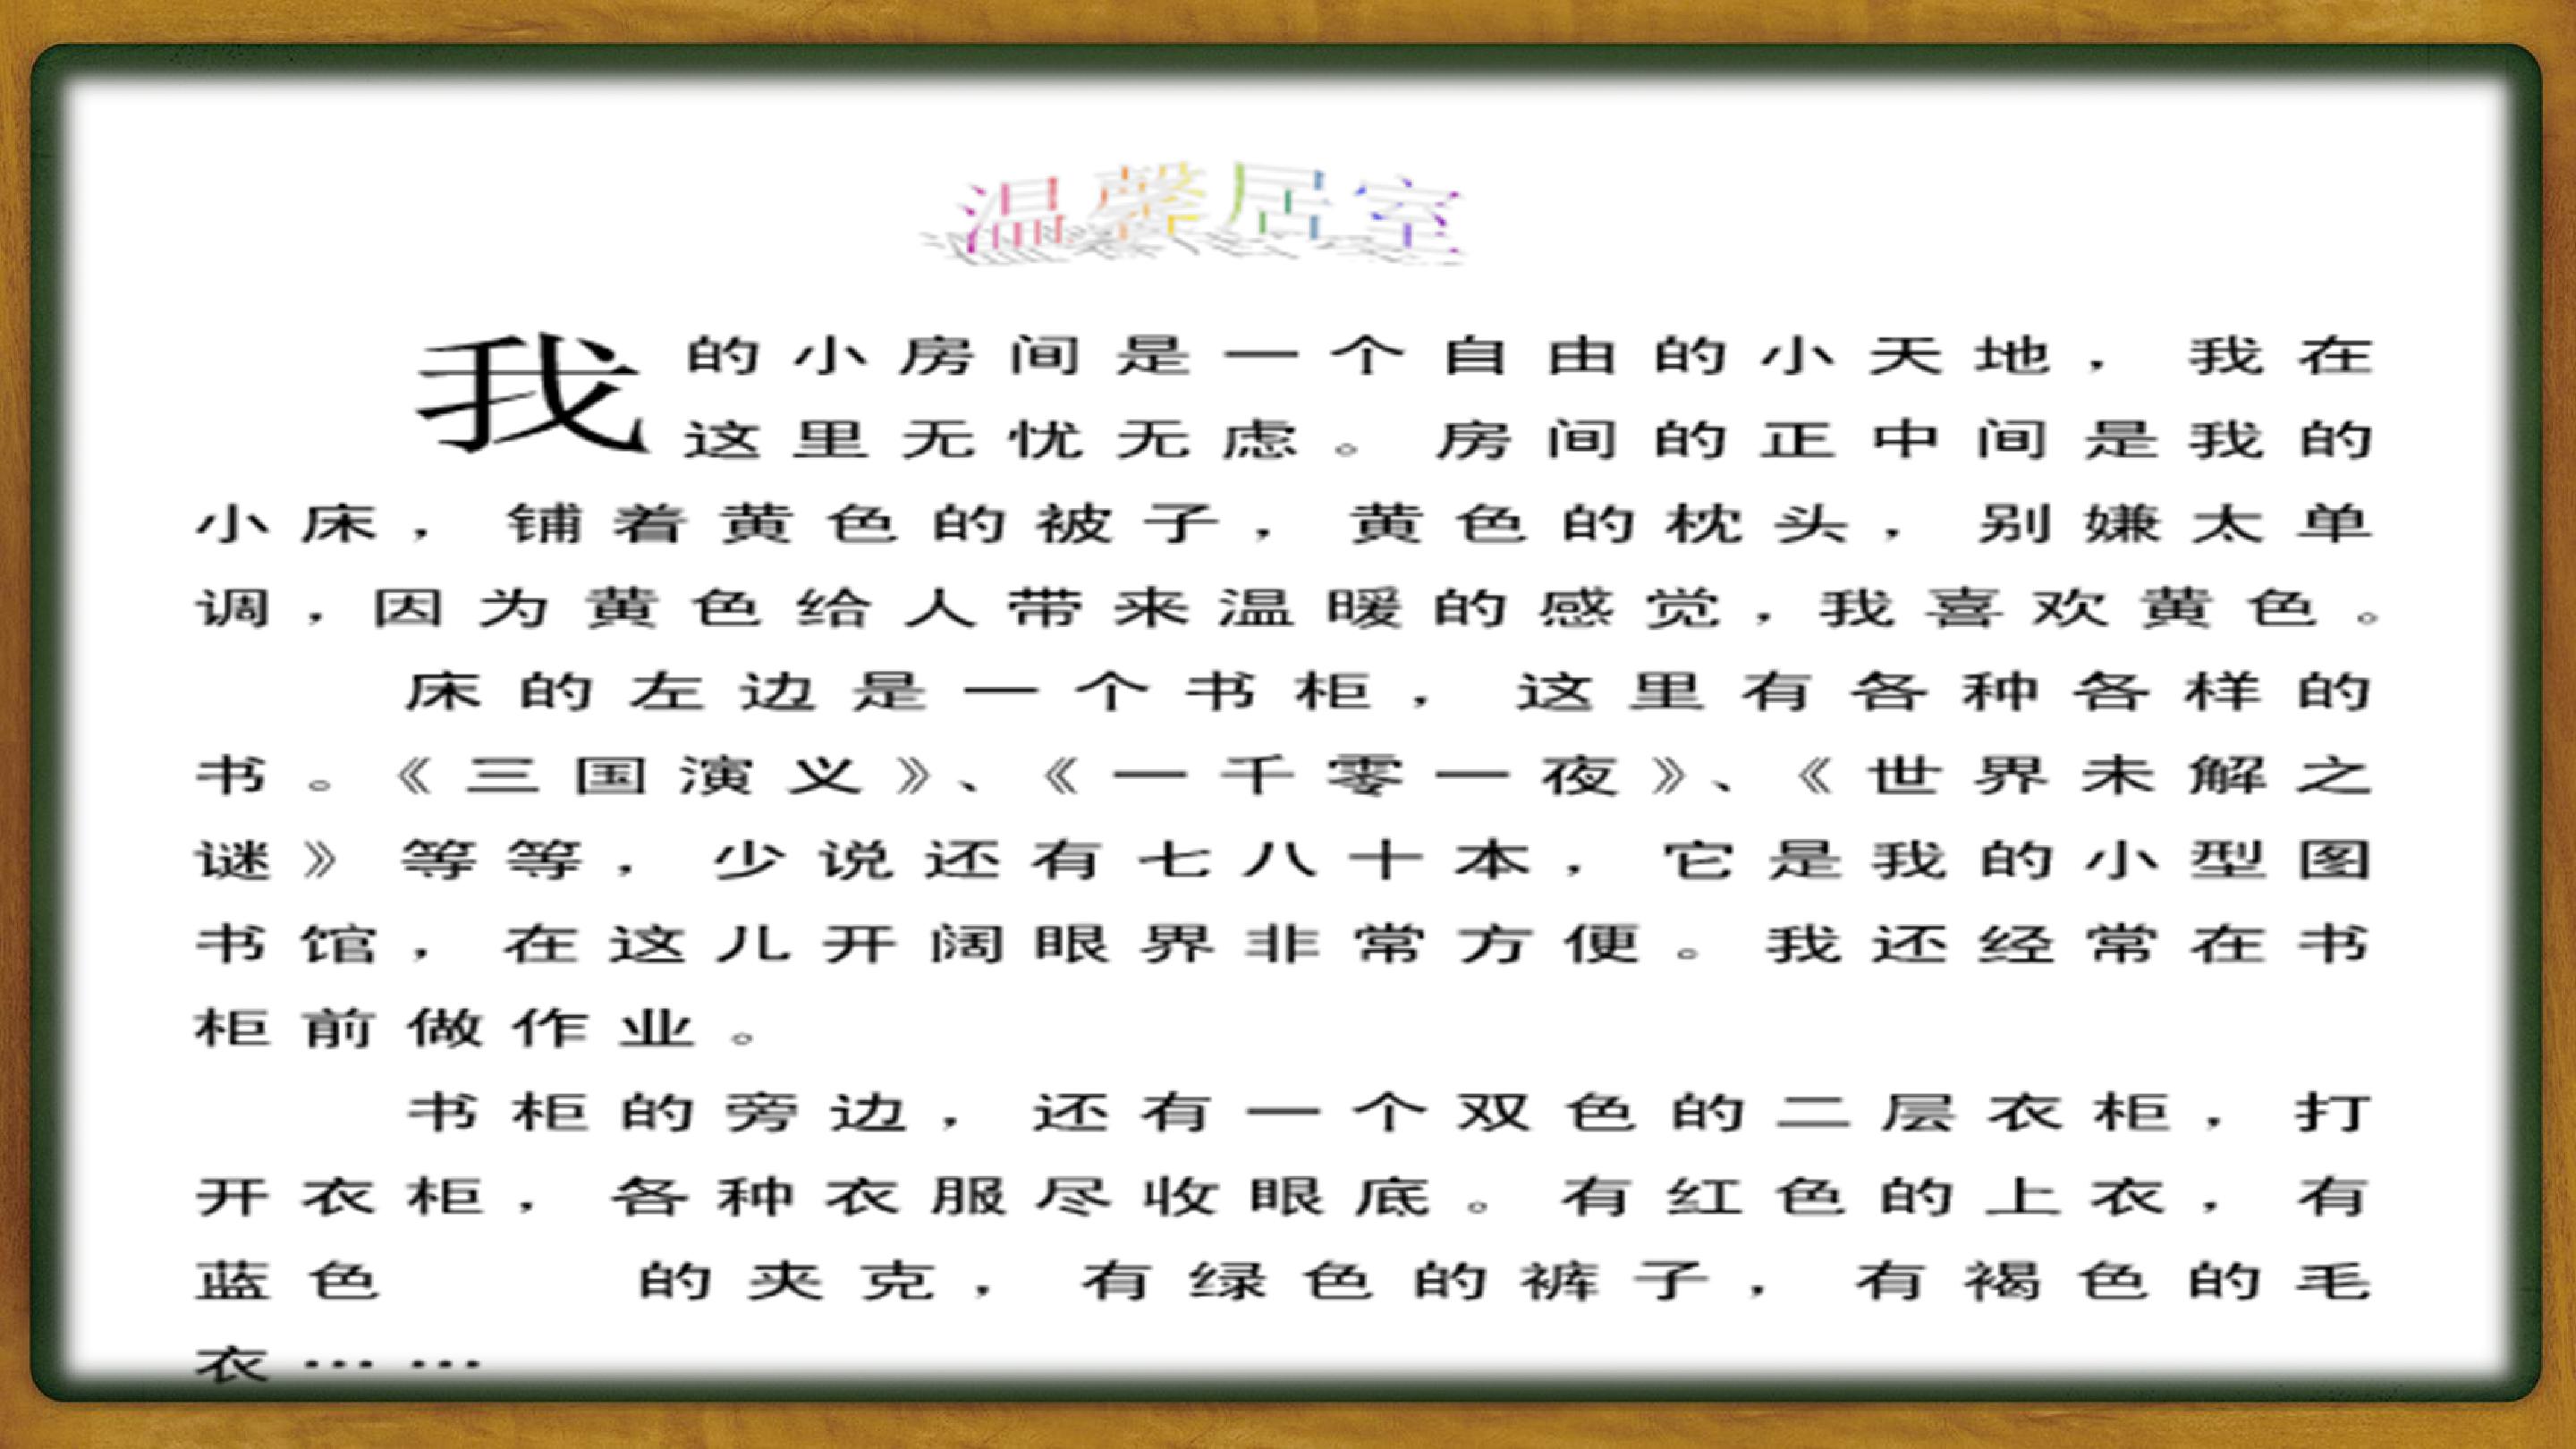 温馨居室
我的小房间是一个自由的小天地，我在
这里无忧无虑。房间的正中间是我的
小床，铺着黄色的被子，黄色的枕头，别嫌太单
调，因为黄色给人带来温暖的感觉，我喜欢黄色。
床的左边是一个书柜，这里有各种各样的
书。《三国演义》、《一千零一夜》、《世界未解之
谜》等等，少说还有七八十本，它是我的小型图
书馆，在这儿开阔眼界非常方便。我还经常在书
柜前做作业。
书柜的旁边，还有一个双色的二层衣柜，打
开衣柜，各种衣服尽收眼底。有红色的上衣，有
蓝色 的夹克，有绿色的裤子，有褐色的毛
衣……